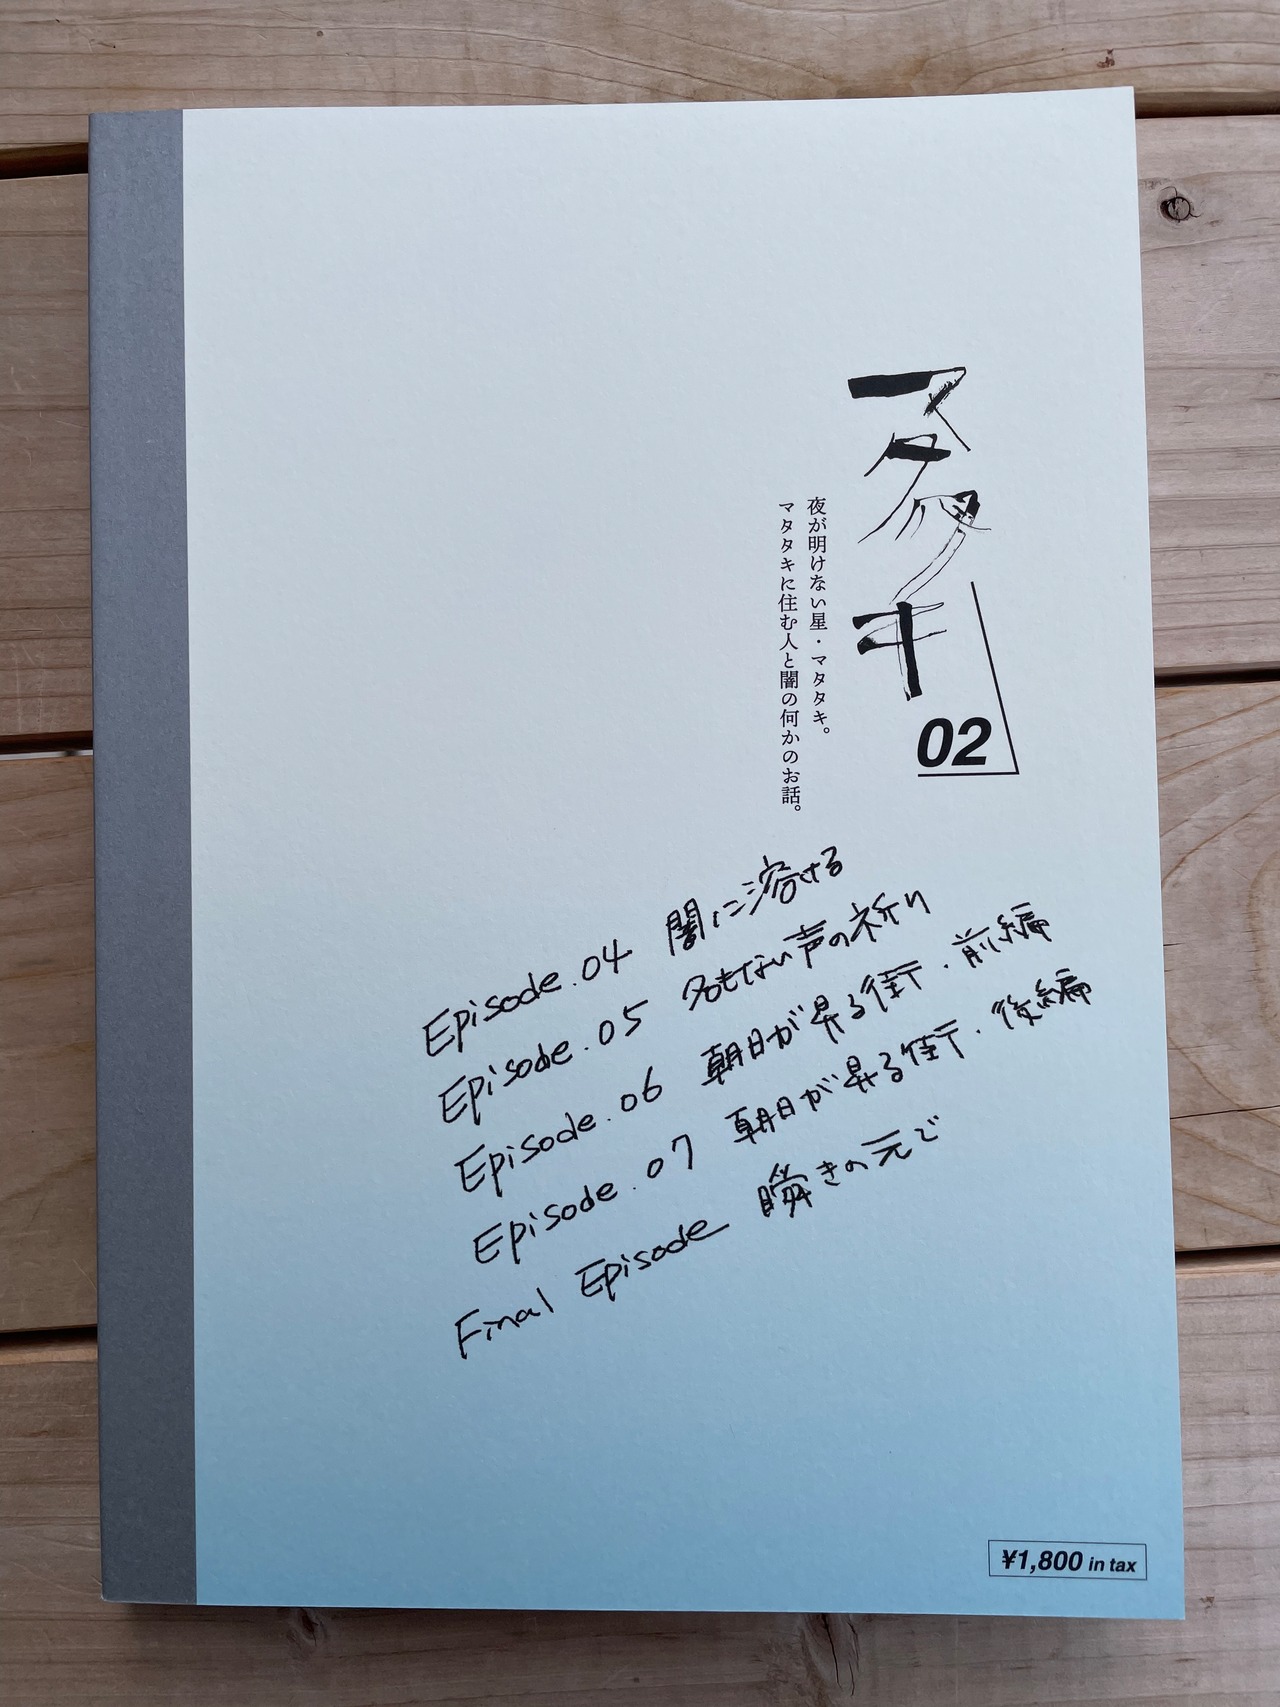 マタタキ
02
夜が明けない星・マタタキ。
マタタキに住む人と闇の何かのお話。
Episode.04 闇に溶ける
Episode.05 名もない声の祈り
Episode.06 朝日が昇る街・前編
Episode.07 朝日が昇る街・後編
Final Episode 瞬きの元で
¥1,800 in tax